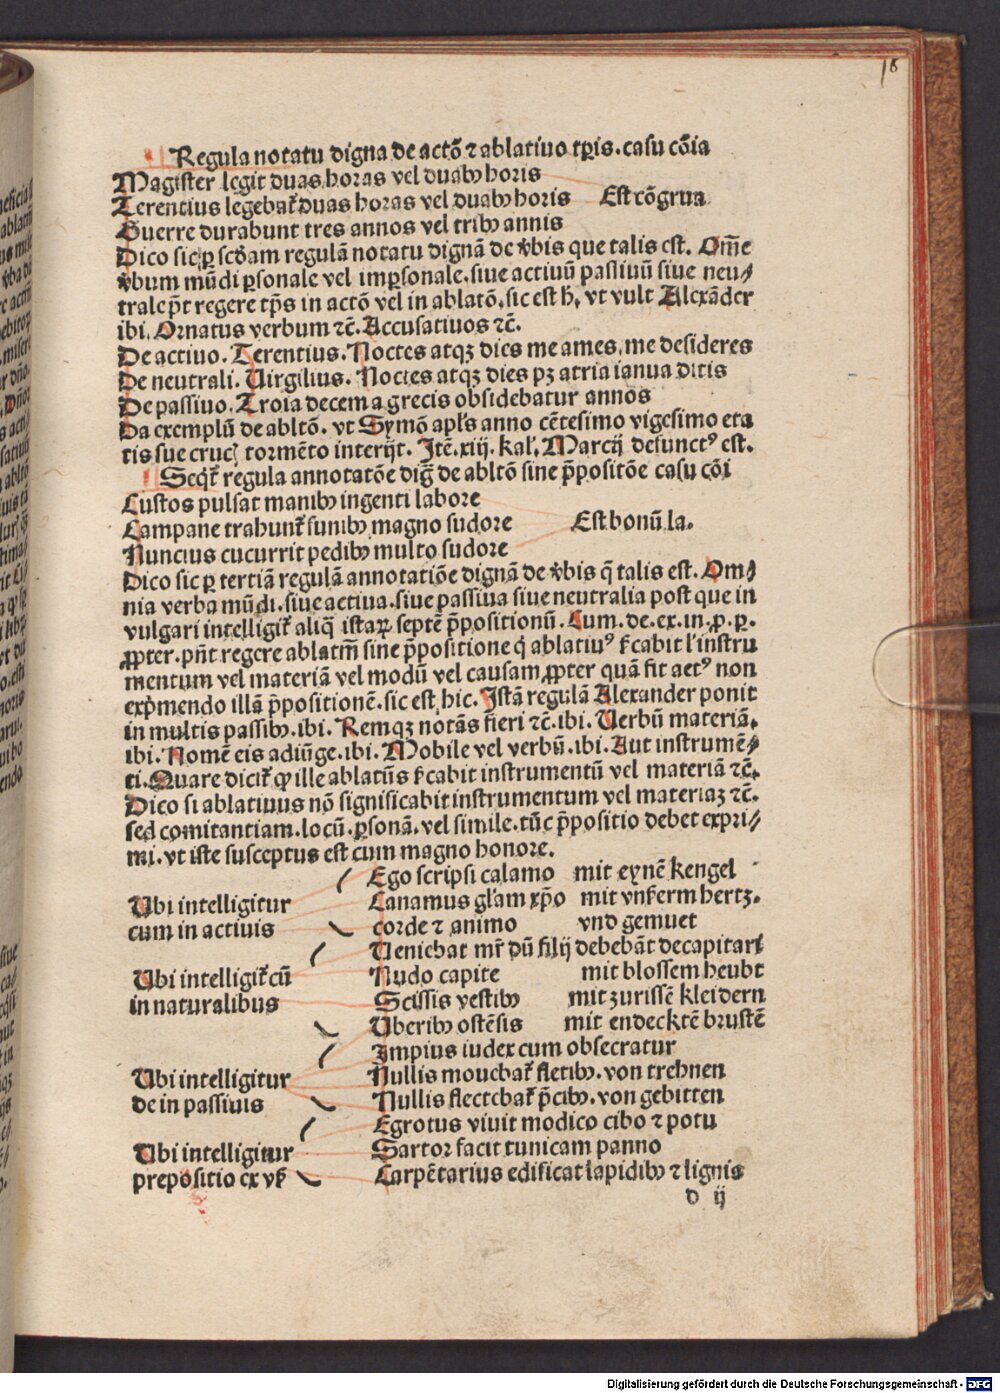 18
Regula notatu digna de actō ⁊ ablatiuo tꝑis. casu cōia
Magister legit duas horas vel duabꝰ horis
Terentius legebat̄ duas horas vel duabꝰ horis Est cōgrua
Guerre durabunt tres annos vel tribꝰ annis
Dico sic ꝑ scd̄am regulā notatu dignā de v̄bis que talis est. Om̄e
v̄bum mūdi ꝑsonale vel imꝑsonale. siue actiuū passiuū siue neu⸗
trale pn̄t regere tp̄s in actō vel in ablatō. sic est h̄, vt vult Alexāder
ibi. Ornatus verbum ⁊c̄. Accusatiuos ⁊c̄.
De actiuo. Terentius. Noctes atqꝫ dies me ames, me desideres
De neutrali. Uirgilius. Noctes atqꝫ dies pꝫ atria ianua ditis
De passiuo. Troia decem a grecis obsidebatur annos
Da exemplū de abltō. vt Symō apl̄s anno cētesimo vigesimo eta
tis sue crucꝭ tormēto interijt. Itē. xiij. kal̄. Marcij defunctꝰ est.
Seqt̄ regula annotatōe diḡ de abltō sine p̄positōe casu cōi
Custos pulsat manibꝰ ingenti labore
Campane trahunt̄ funibꝰ magno sudore Est bonū la.
Nuncius cucurrit pedibꝰ multo sudore
Dico sic ꝑ tertiā regulā annotatiōe dignā de v̄bis q̄ talis est. Om⸗
nia verba mūdi. siue actiua. siue passiua siue neutralia post que in
vulgari intelligit̄ aliq̄ istaꝝ septē p̄positionū. Cum. de. ex. in. p. p.
ꝓpter. pn̄t regere ablatm̄ sine p̄positione q̇ ablatiuꝰ f̄cabit l' instru
mentum vel materiā vel modū vel causam ꝓpter quā fit actꝰ non
exp̄mendo illā p̄positionē. sic est hic. Istā regulā Alexander ponit
in multis passibꝰ. ibi. Remqꝫ notās fieri ⁊c̄. ibi. Uerbū materiā.
ibi. Nomē eis adiūge. ibi. Mobile vel verbū. ibi. Aut instrumē⸗
ti. Quare dicit̄ ꝙ ille ablatūs f̄cabit instrumentū vel materiā ⁊c̄.
Dico si ablatiuus nō significabit instrumentum vel materiaꝫ ⁊c̄.
sed comitantiam. locū. ꝑsonā. vel simile. tūc p̄positio debet expri⸗
mi. vt iste susceptus est cum magno honore.
Ego scripsi calamo mit eynē kengel
Ubi intelligitur Canamus gl̄am xp̄o mit vnẜerm hertz.
cum in actiuis corde ⁊ animo vnd gemuet
Ueniebat mr̄ dū filij debebāt decapitari
Ubi intelligit̄ cū Nudo capite mit blossem heubt
in naturalibus Scissis vestibꝰ mit zurissē kleidern
Uberibꝰ ostēsis mit endecktē brustē
Impius iudex cum obsecratur
Ubi intelligitur Nullis mouebat̄ fletibꝰ. von trehnen
de in passiuis Nullis flectebat̄ p̄cibꝰ. von gebitten
Egrotus viuit modico cibo ⁊ potu
Ubi intelligitur Sartor facit tunicam panno
prepositio ex vẜ Carpētarius edificat lapidibꝰ ⁊ lignis
d ij
Digitalisierung gefördert durch die Deutsche Forschungsgemeinschaft - DFG